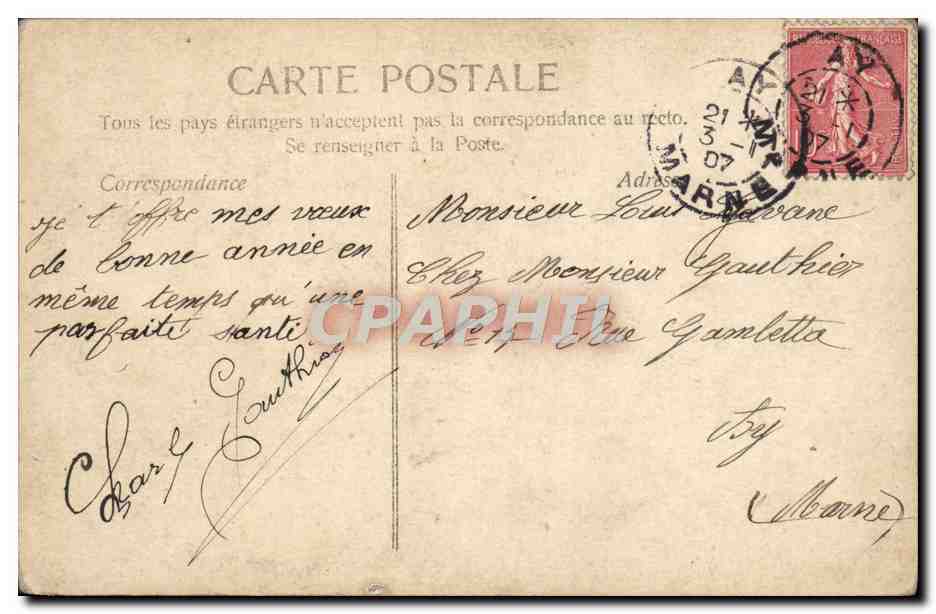 CARTE POSTALE
Tous les pays étrangers n'acceptent pas la correspondance au recto.
Se renseigner à la Poste.
Correspondance
je t'offre mes vœux
de bonne année en
même temps qu'une
parfaite santé
Gauthier
Adresse
Monsieur Louis
Chez Monsieur Gauthier
Rue Gambetta
Ay
(Marne)
AY
21
3 - 1
07
MARNE
AY
21
3 - 1
07
FRANÇAISE
CPAPHIL